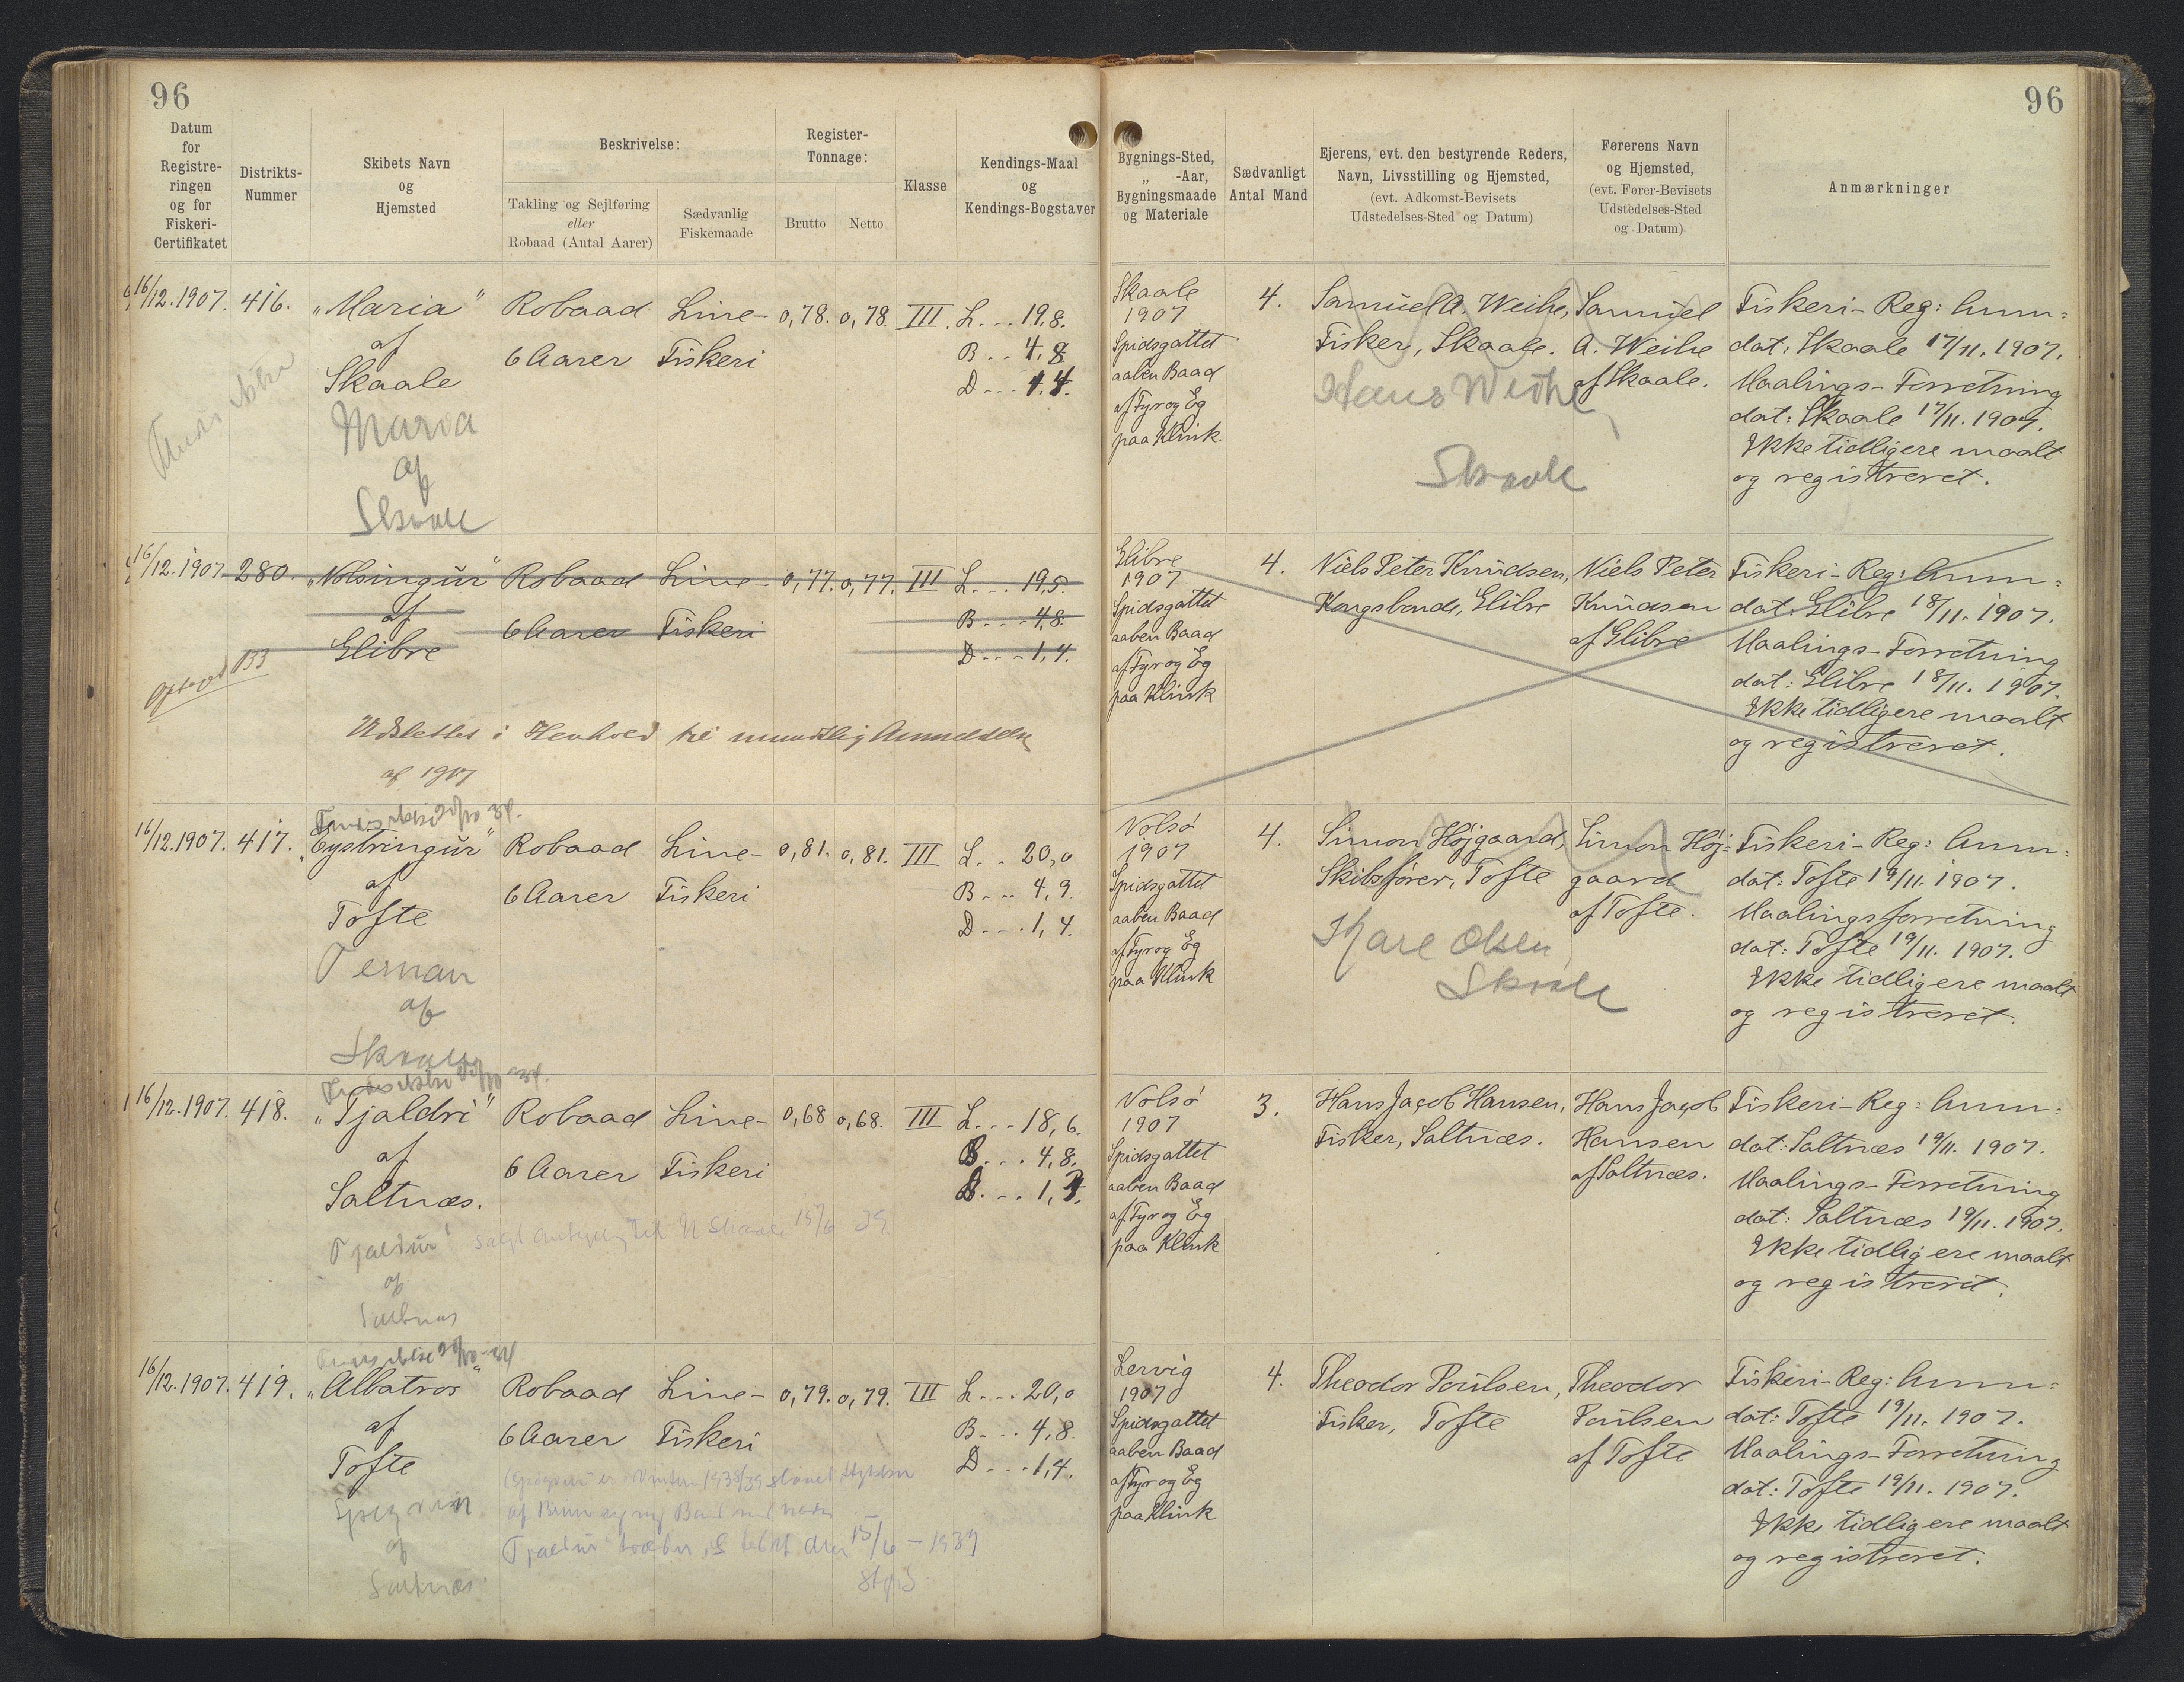 96
Datum
for
Registre-
ringen
og for
Fiskeri-
Certifikatet
Distrikts-
Nummer
Skibets Navn
og
Hjemsted
Beskrivelse:
Takling og Sejlføring
eller
Robaad (Antal Aarer)
Sædvanlig
Fiskemaade
Register-
Tonnage:
Brutto
Netto
Klasse
Kendings-Maal
og
Kendings-Bogstaver
16/12.1907. 416. „Maria" Robaad Line- 0,78. 0,78. III. L... 19,8.
af 6 Aarer Fiskeri B.. 4,8
Skaale D... 1,4.
Maria
af
Skaale
16/12.1907. 280. „Nolsingur" Robaad Line- 0,77. 0,77. III L... 19,5.
af 6 Aarer Fiskeri B... 4,8.
Glibre D... 1,4.
Udslettes i Henhold til mundtlig Anmeldelse
af 1917
16/12.1907. 417. „Eystringur" Robaad Line- 0,81. 0,81. III L.. 20,0
af 6 Aarer Fiskeri B... 4,9.
Tofte D... 1,4.
Ternan
af
Skaale
16/12.1907. 418. „Tjaldri" Robaad Line- 0,68 0,68. III L... 18,6.
af 6 Aarer Fiskeri B... 4,8.
Saltnæs. D... 1,4.
Tjaldur
af
Saltnæs
15/6 39
16/12.1907. 419. „Albatros" Robaad Line- 0,79. 0,79. III L... 20,0
af 6 Aarer Fiskeri B... 4,8.
Tofte D... 1,4.
af
Saltnæs
Tjaldur den 15/6 - 1939
96
Bygnings-Sted,
„ -Aar,
Bygningsmaade
og Materiale
Sædvanligt
Antal Mand
Ejerens, evt. den bestyrende Reders,
Navn, Livsstilling og Hjemsted,
(evt. Adkomst-Bevisets
Udstedelses-Sted og Datum)
Førerens Navn
og Hjemsted,
(evt. Fører-Bevisets
Udstedelses-Sted
og Datum)
Anmærkninger
Skaale 4. Samuel A. Weihe, Samuel Fiskeri-Reg: Anm:
1907 Fisker, Skaale. A. Weihe dat: Skaale 17/11.1907.
Spidsgattet af Skaale. Maalings-Forretning
aaben Baad dat: Skaale 17/11.1907.
af Fyr og Eg Ikke tidligere maalt
paa Klink. og registreret.
Hans Weihe
Skaale
Glibre 4. Niels Peter Knudsen, Niels Peter Fiskeri-Reg: Anm:
1907 Kongsbonde, Glibre Knudsen dat: Glibre 18/11.1907.
Spidsgattet af Glibre Maalings-Forretning
aaben Baad dat: Glibre 18/11.1907.
af Fyr og Eg Ikke tidligere maalt
paa Klink og registreret.
Nolsø 4. Simon Højgaard, Simon Høj- Fiskeri-Reg: Anm:
1907 Skibsfører, Tofte gaard dat: Tofte 19/11.1907.
Spidsgattet af Tofte. Maalingsforretning
aaben Baad dat: Tofte 19/11.1907.
af Fyr og Eg Ikke tidligere maalt
paa Klink og registreret.
Olsen
Skaale
Nolsø 3. Hans Jacob Hansen, Hans Jacob Fiskeri-Reg: Anm:
1907 Fisker, Saltnæs. Hansen dat: Saltnæs 19/11.1907.
Spidsgattet af Saltnæs. Maalings-Forretning
aaben Baad dat: Saltnæs 19/11.1907.
af Fyr og Eg Ikke tidligere maalt
paa Klink og registreret.
Lervig 4. Theodor Poulsen, Theodor Fiskeri-Reg: Anm:
1907 Fisker, Tofte Poulsen dat: Tofte 19/11.1907.
Spidsgattet af Tofte Maalings-Forretning
aaben Baad dat: Tofte 19/11.1907.
af Fyr og Eg Ikke tidligere maalt
paa Klink og registreret.